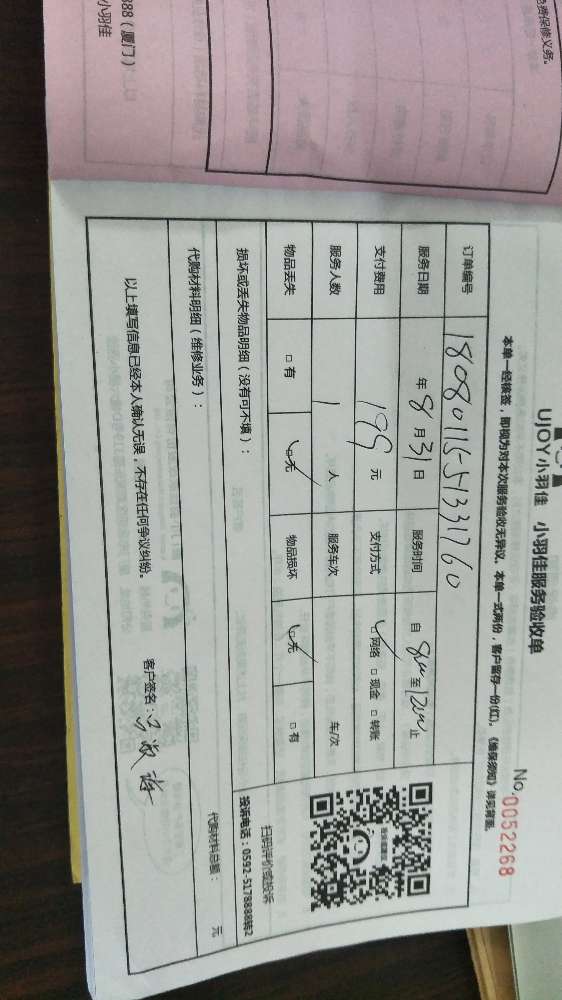 免费保修义务。
888（厦门）
小羽佳
UJOY小羽佳 小羽佳服务验收单
No.0052268
本单一经核签，即视为对本次服务验收无异议。本单一式两份，客户留存一份(红)。《维保须知》详见背面。
订单编号 180801155133760
服务日期 年 8 月 31 日 服务时间 自 8:00 至 12:00 止
支付费用 199 元 支付方式 ☑网络 □现金 □转账
服务人数 1 人 服务车次 车/次
物品丢失 □有 ☑无 物品损坏 ☑无 □有
扫码评价或投诉
投诉电话：0592-5178888转2
损坏或丢失物品明细（没有可不填）：
代购材料明细（维修业务）：
代购材料总额： 元
以上填写信息已经本人确认无误，不存在任何争议纠纷。
客户签名：